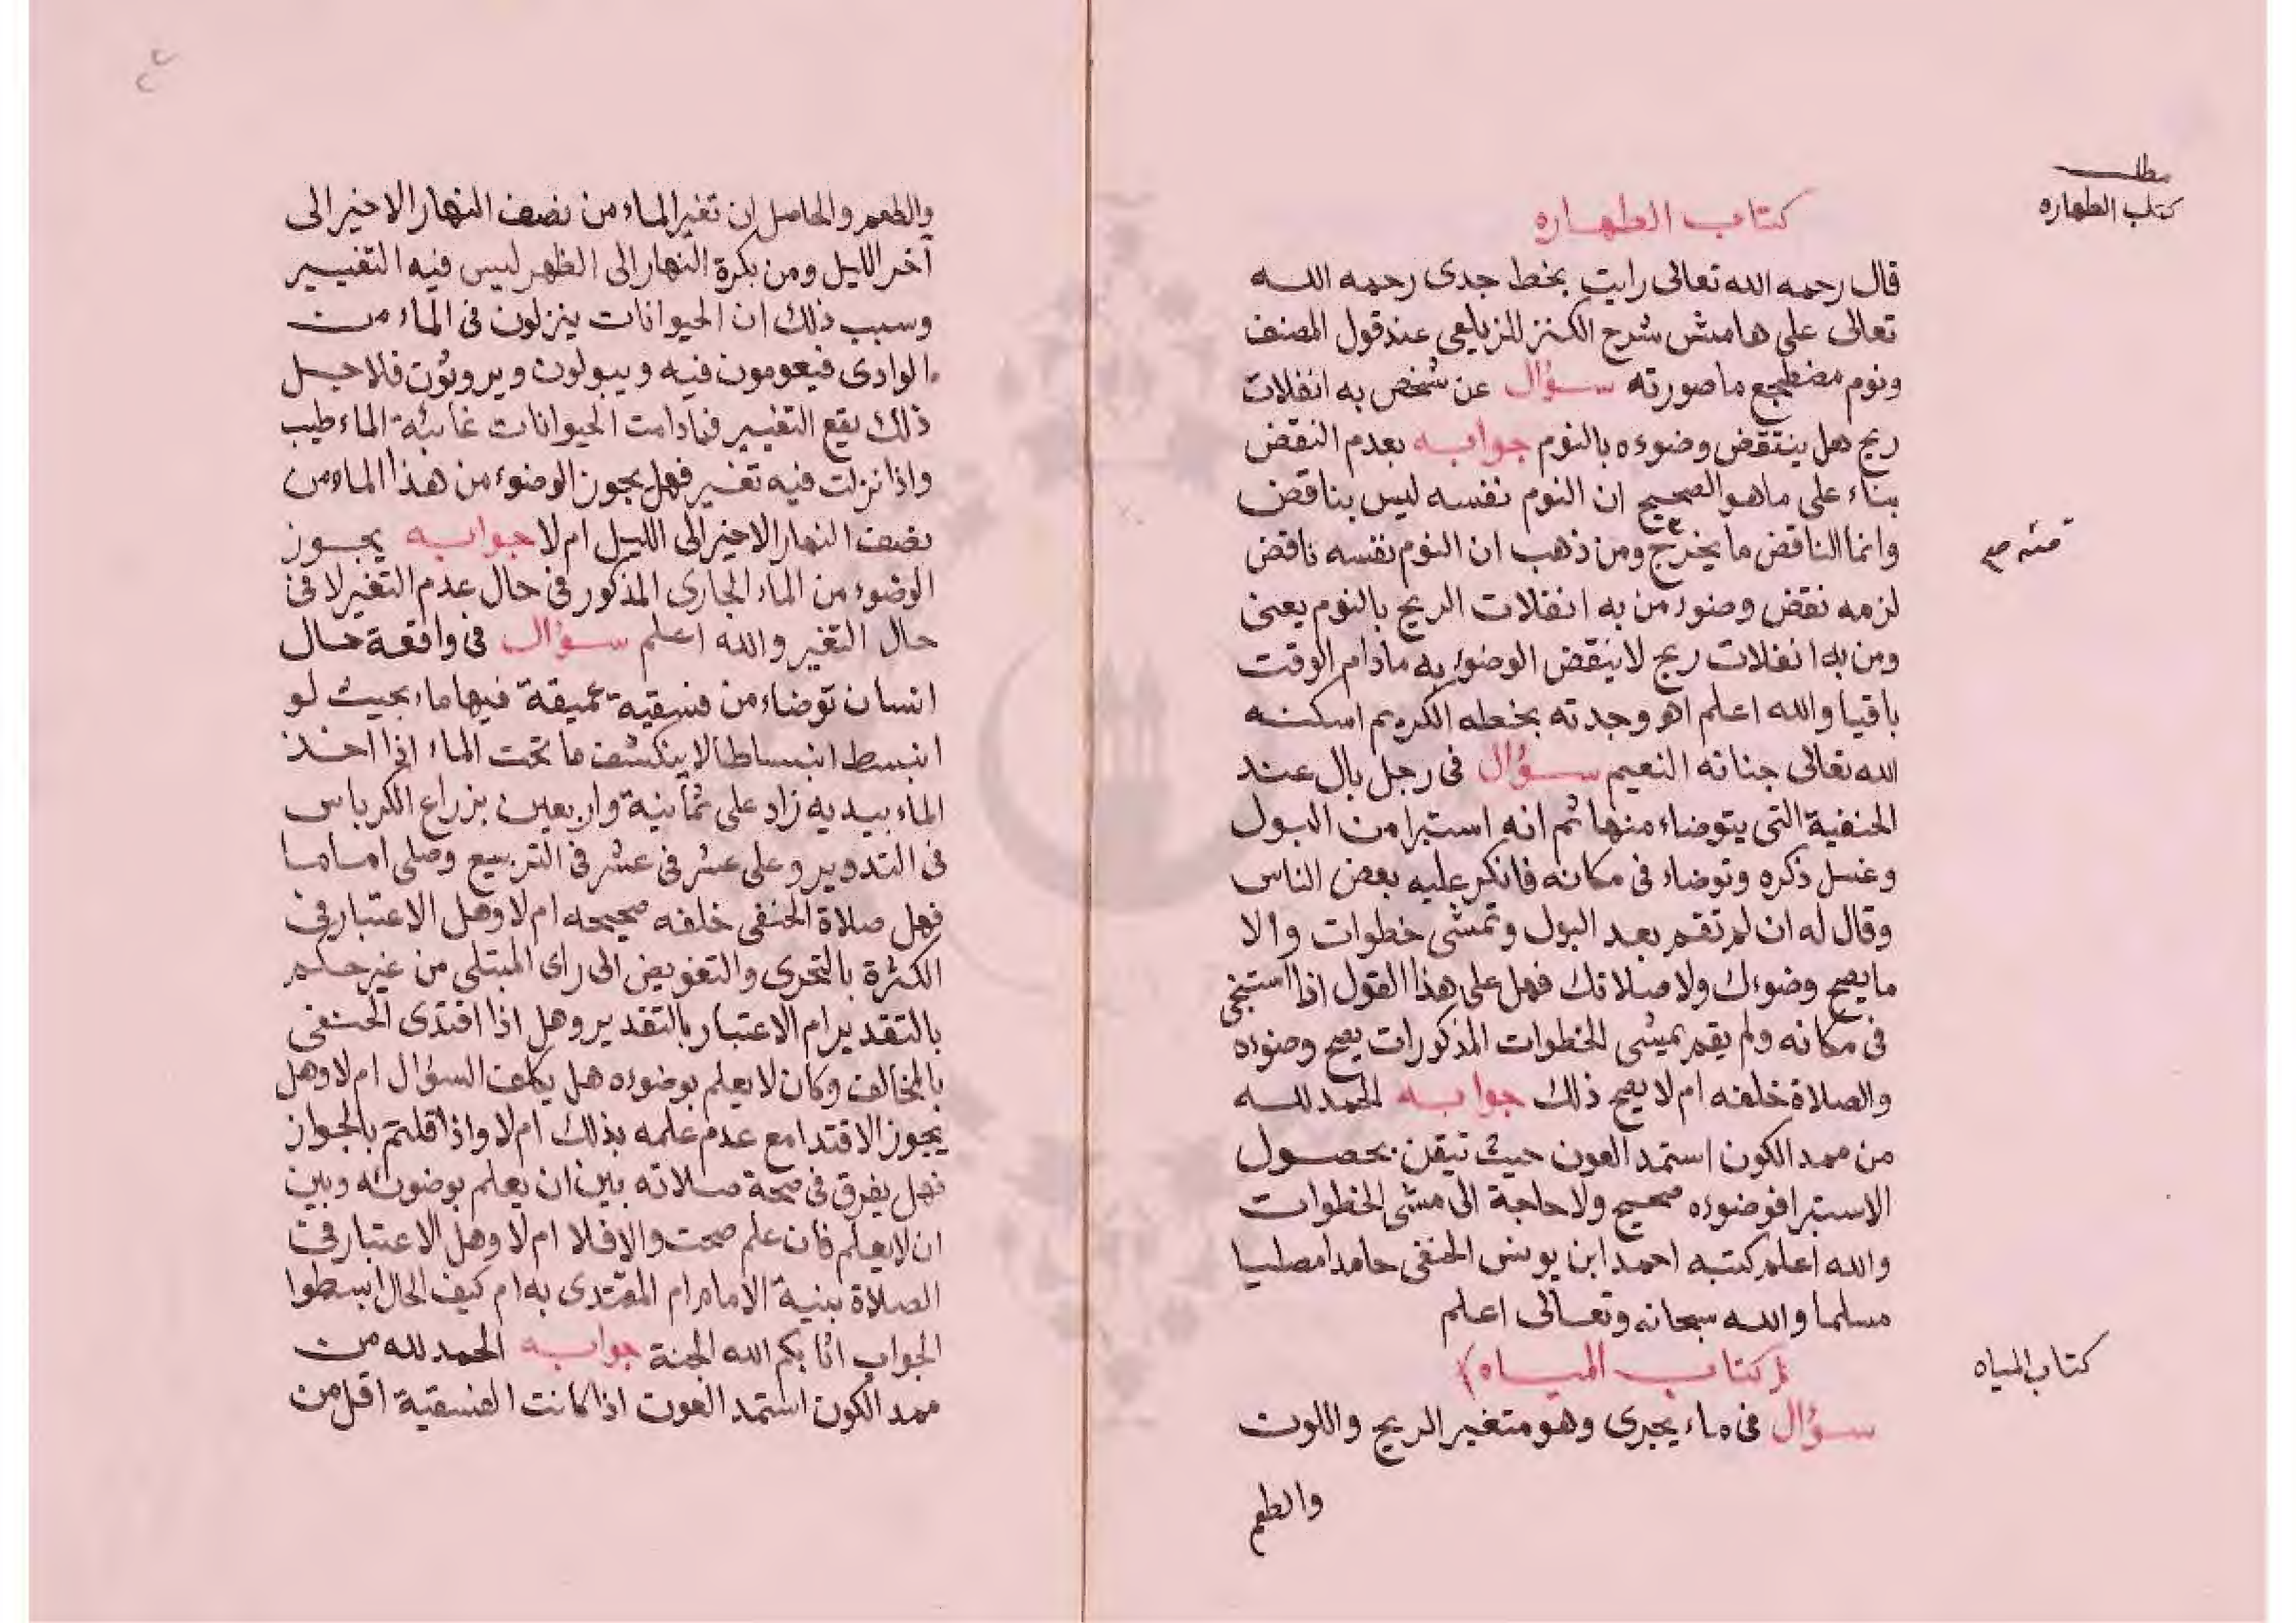 مطلب
كتاب الطهاره
كتاب الطهاره
قال رحمه الله تعالى رايت بخط جدى رحمه الله
تعالى على هامش شرح الكنز للزيلعى عند قول المصنف
ونوم مضطجع ما صورته سؤال عن شخص به انفلات
ريح هل ينتقض وضوءه بالنوم جوابه بعدم النقض
بناء على ما هو الصحيح ان النوم نفسه ليس بناقض
وانما الناقض ما يخرج ومن ذهب ان النوم نفسه ناقض
منه صح
لزمه نقض وضوء من به انفلات الريح بالنوم يعنى
ومن به انفلات ريح لا ينقض الوضوء به مادام الوقت
باقيا والله اعلم اهو وجدته بخطه الكريم اسكنه
الله تعالى جناته النعيم سؤال فى رجل بال عند
الحنفية التى يتوضاء منها ثم انه استبرا من البول
وغسل ذكره وتوضاء فى مكانه فانكر عليه بعض الناس
وقال له ان لم تقم بعد البول وتمشى خطوات والا
ما يصح وضوءك ولا صلاتك فهل على هذا القول اذا استنجى
فى مكانه ولم يقم بمشى الخطوات المذكورات يصح وضوءه
والصلاة خلفه ام لا يصح ذلك جوابه الحمد لله
من ممد الكون استمد العون حيث تيقن بحصول
الاستبرا فوضوءه صحيح ولا حاجة الى مشى الخطوات
والله اعلم كتبه احمد ابن يونس الحنفى حامدا مصليا
مسلما والله سبحانه وتعالى اعلم
كتاب المياه
(كتاب المياه)
سؤال فى ماء يجرى وهو متغير الريح واللون
والطعم
٢٢
والطعم والحاصل ان تغير الماء من نصف النهار الاخير الى
آخر الليل ومن بكرة النهار الى الظهر ليس فيه التغيير
وسبب ذلك ان الحيوانات ينزلون فى الماء من
الوادى فيعومون فيه ويبولون ويروثون فلاجل
ذلك يقع التغيير فمادامت الحيوانات غائبة الماء طيب
واذا نزلت فيه تغير فهل يجوز الوضوء من هذا الماء من
نصف النهار الاخير الى الليل ام لا جوابه يجوز
الوضوء من الماء الجارى المذكور فى حال عدم التغير لا فى
حال التغير والله اعلم سؤال فى واقعة حال
انسان توضاء من فسقية عميقة فيها ماء بحيث لو
انبسط انبساطا لا ينكشف ما تحت الماء اذا اخذ
الماء بيديه زاد على ثمانية واربعين بزراع الكرباس
فى التدوير وعلى عشر فى عشر فى التربيع وصلى اماما
فهل صلاة الحنفى خلفه صحيحه ام لا وهل الاعتبار فى
الكثرة بالتحرى والتفويض الى راى المبتلى من غير حكم
بالتقدير ام الاعتبار بالتقدير وهل اذا اقتدى الحنفى
بالمخالف وكان لا يعلم بوضوءه هل يكلف السؤال ام لا وهل
يجوز الاقتدا مع عدم علمه بذلك ام لا واذا قلتم بالجواز
فهل يفرق فى صحة صلاته بين ان يعلم بوضوئه وبين
ان لا يعلم فان علم صحت والا فلا ام لا وهل الاعتبار فى
الصلاة بنية الامام ام المقتدى به ام كيف الحال ابسطوا
الجواب اثابكم الله الجنة جوابه الحمد لله من
ممد الكون استمد العون اذا كانت الفسقية اقل من